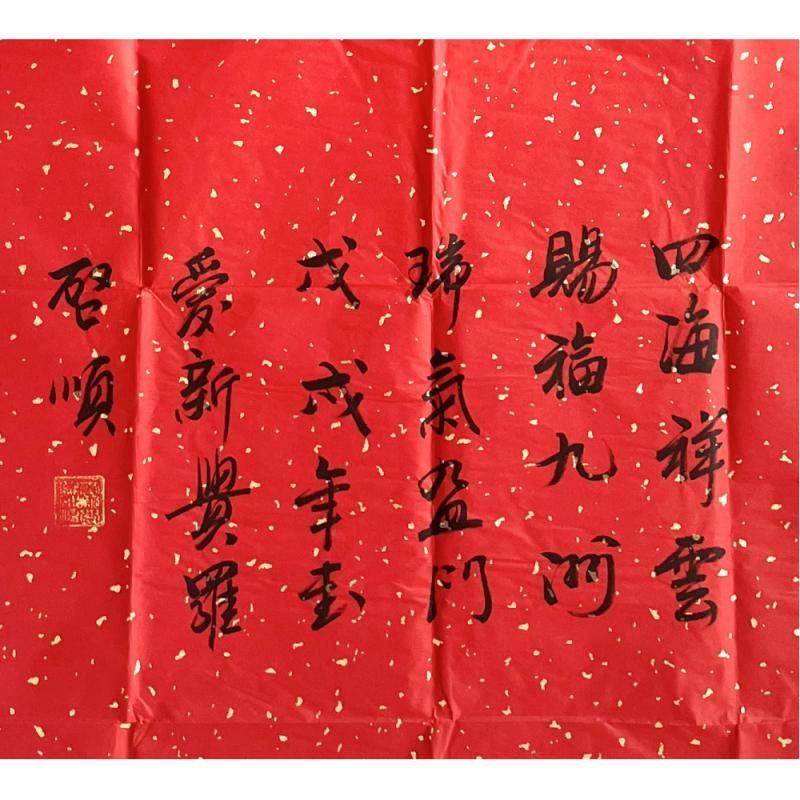 四海祥雲
賜福九洲
瑞氣盈門
戊戌年書
愛新覺羅
啓順